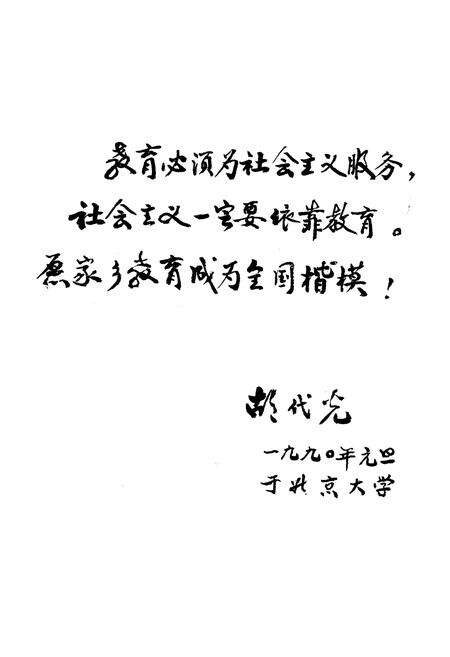 教育必须为社会主义服务，
社会主义一定要依靠教育。
愿家乡教育成为全国楷模！
胡代光
一九九〇年元旦
于北京大学